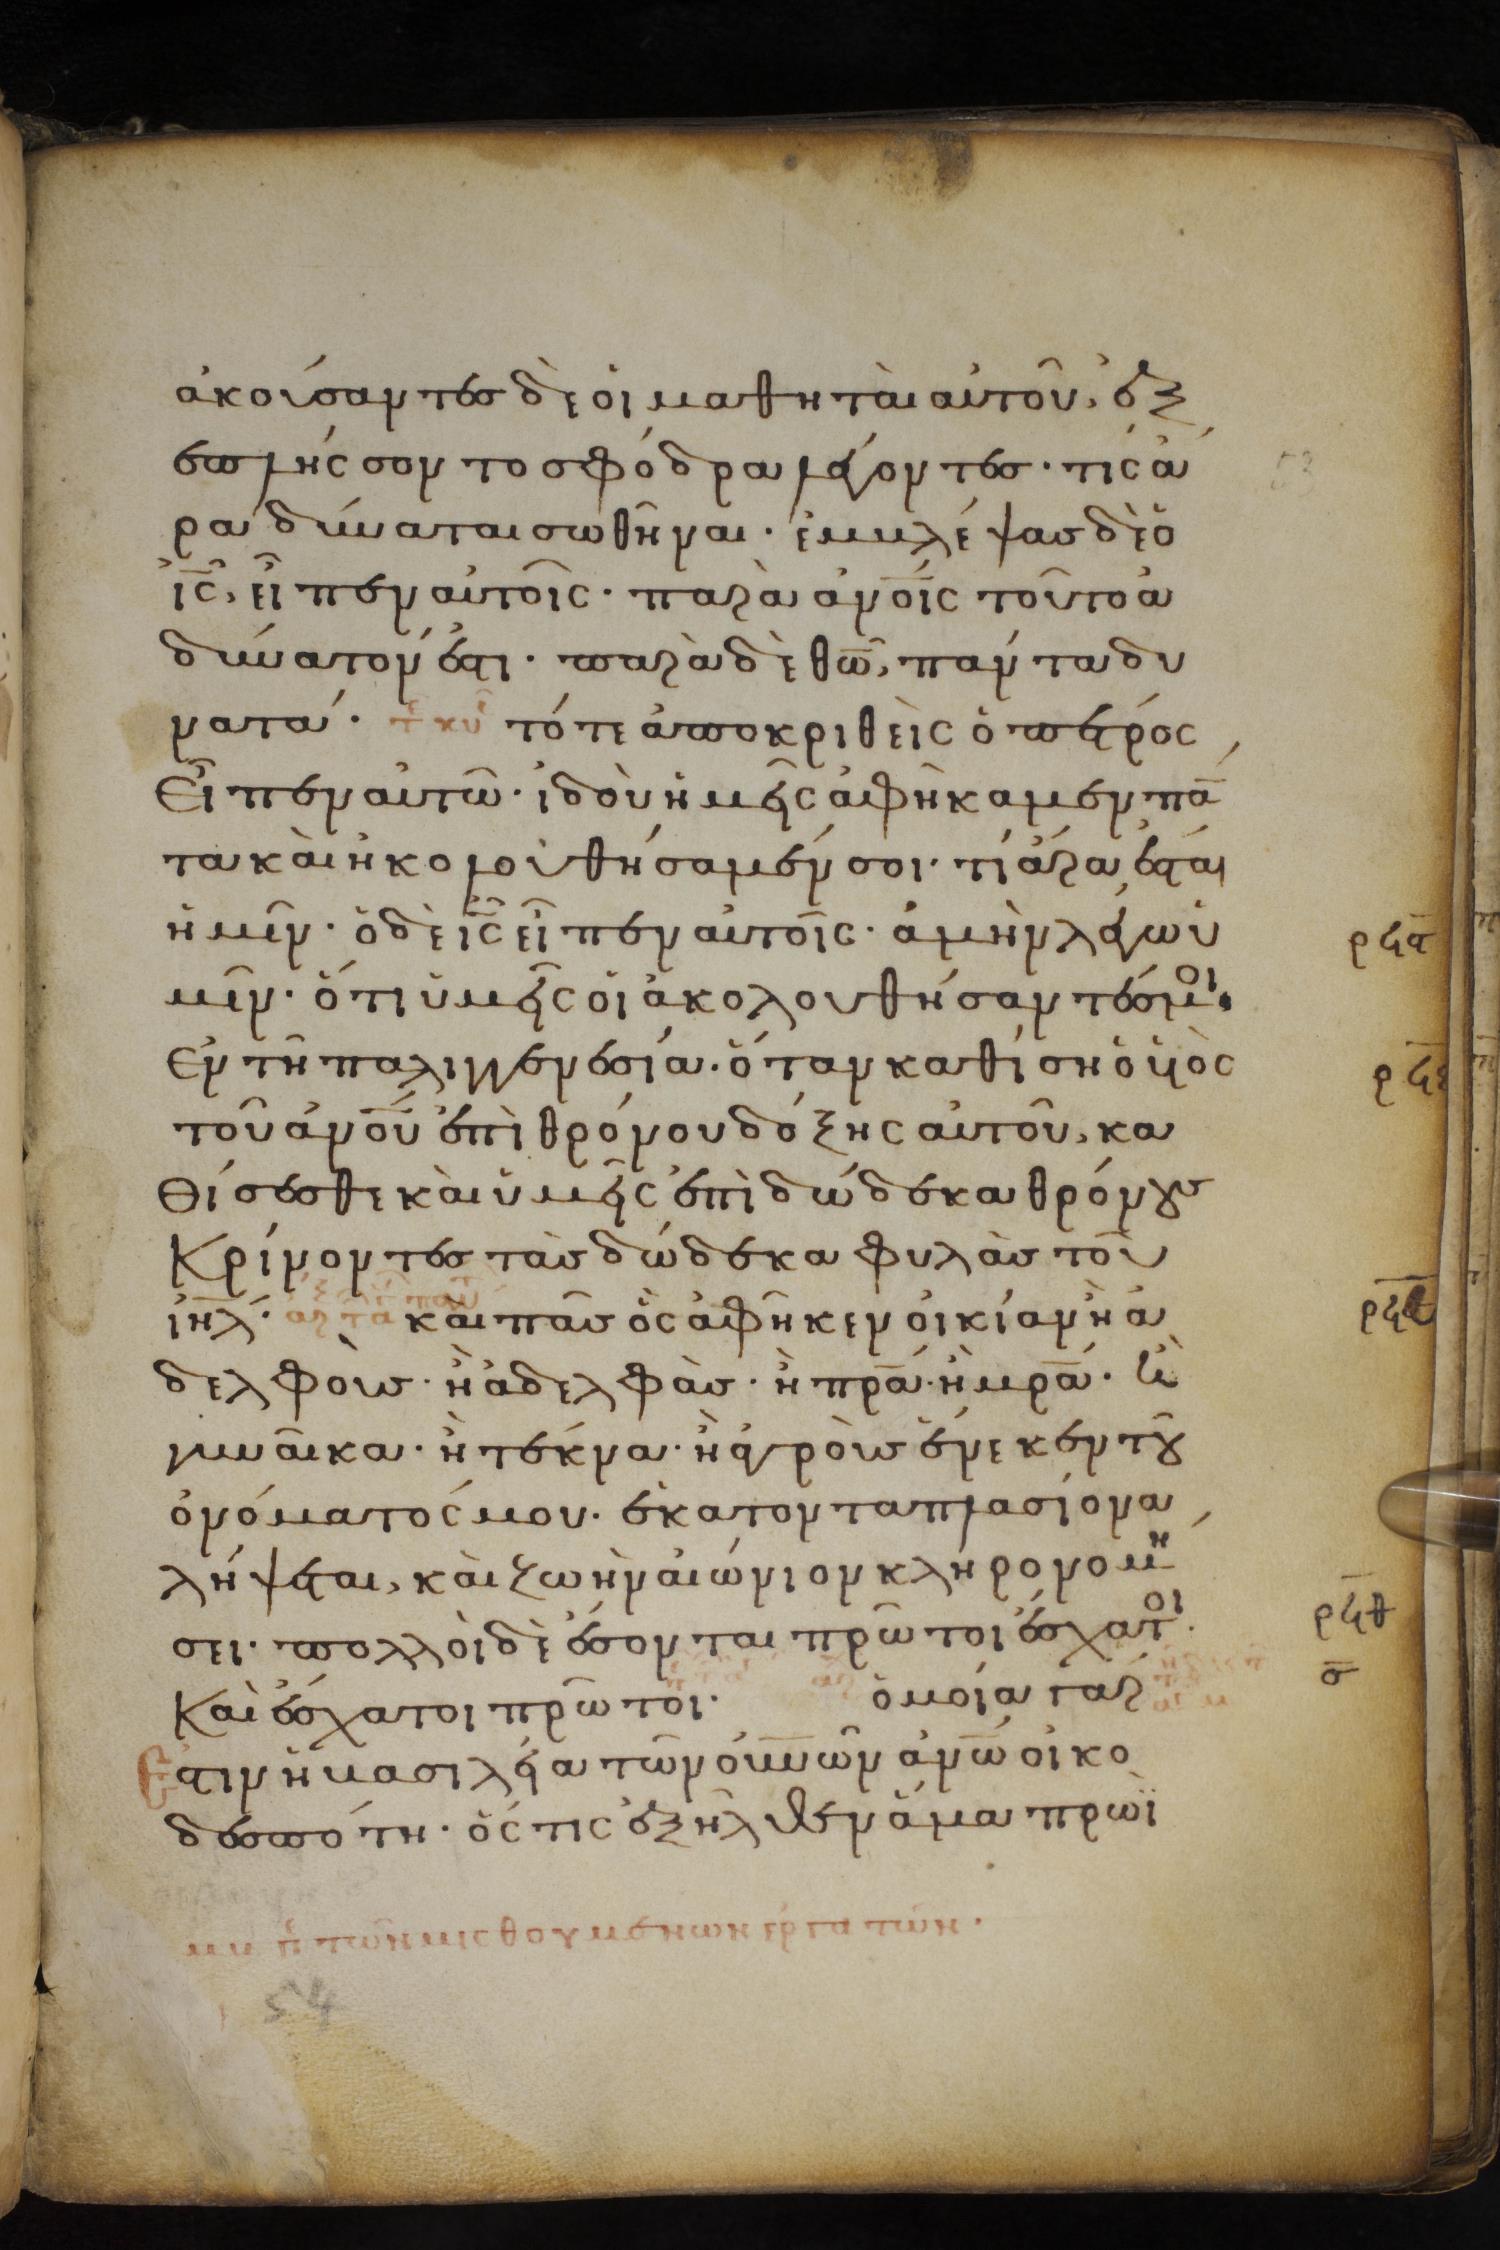 ἀκούσαντες δὲ οἱ μαθηταὶ αὐτοῦ, ἐξ
επλήσσοντο σφόδρα λέγοντες· τίς ἄ
ρα δύναται σωθῆναι· ἐμβλέψας δὲ ὁ
ἰς, εἶπεν αὐτοῖς· παρὰ ἀνοις τοῦτο ἀ
δύνατόν ἐστι· παρὰ δὲ θω, πάντα δυ
νατά· τότε ἀποκριθεὶς ὁ πέτρος
Εἶπεν αὐτῶ· ἰδοὺ ἡμεῖς ἀφήκαμεν πά
τα καὶ ἠκολουθήσαμέν σοι· τί ἄρα ἔσται
ἡμῖν· ὁ δὲ ις εἶπεν αὐτοῖς· ἀμὴν λέγω ὑ
μῖν· ὅτι ὑμεῖς οἱ ἀκολουθήσαντές μοι·
Ἐν τῆ παλιγγενεσία· ὅταν καθίση ὁ υἱὸς
τοῦ ἀνου ἐπὶ θρόνου δόξης αὐτοῦ, κα
Θίσεσθε καὶ ὑμεῖς ἐπὶ δώδεκα θρόνους
Κρίνοντες τὰς δώδεκα φυλὰς τοῦ
ἰηλ· καὶ πᾶς ὃς ἀφῆκεν οἰκίαν ἢ ἀ
δελφοὺς· ἢ ἀδελφὰς· ἢ πρα· ἢ μρα· ἢ
γυναῖκα· ἢ τέκνα· ἢ ἀγροὺς ἕνεκεν τοῦ
ὀνόματός μου· ἑκατονταπλασίονα
λήψεται, καὶ ζωὴν αἰώνιον κληρονομή
σει· πολλοὶ δὲ ἔσονται πρῶτοι ἔσχατοι·
Καὶ ἔσχατοι πρῶτοι· ὁμοία γάρ
Ἐστιν ἡ βασιλεία τῶν οὐνων ἀνω οἰκο
δεσπότη· ὅστις ἐξῆλθεν ἅμα πρωῒ
τῶν μισθουμένων ἐργατῶν·
54
53
ρϟα
ρϟθ
σ